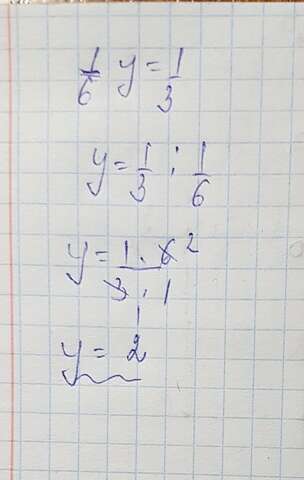 1/6 y = 1/3
y = 1/3 : 1/6
y = 1 · 6 2 / 3 · 1
1
y = 2